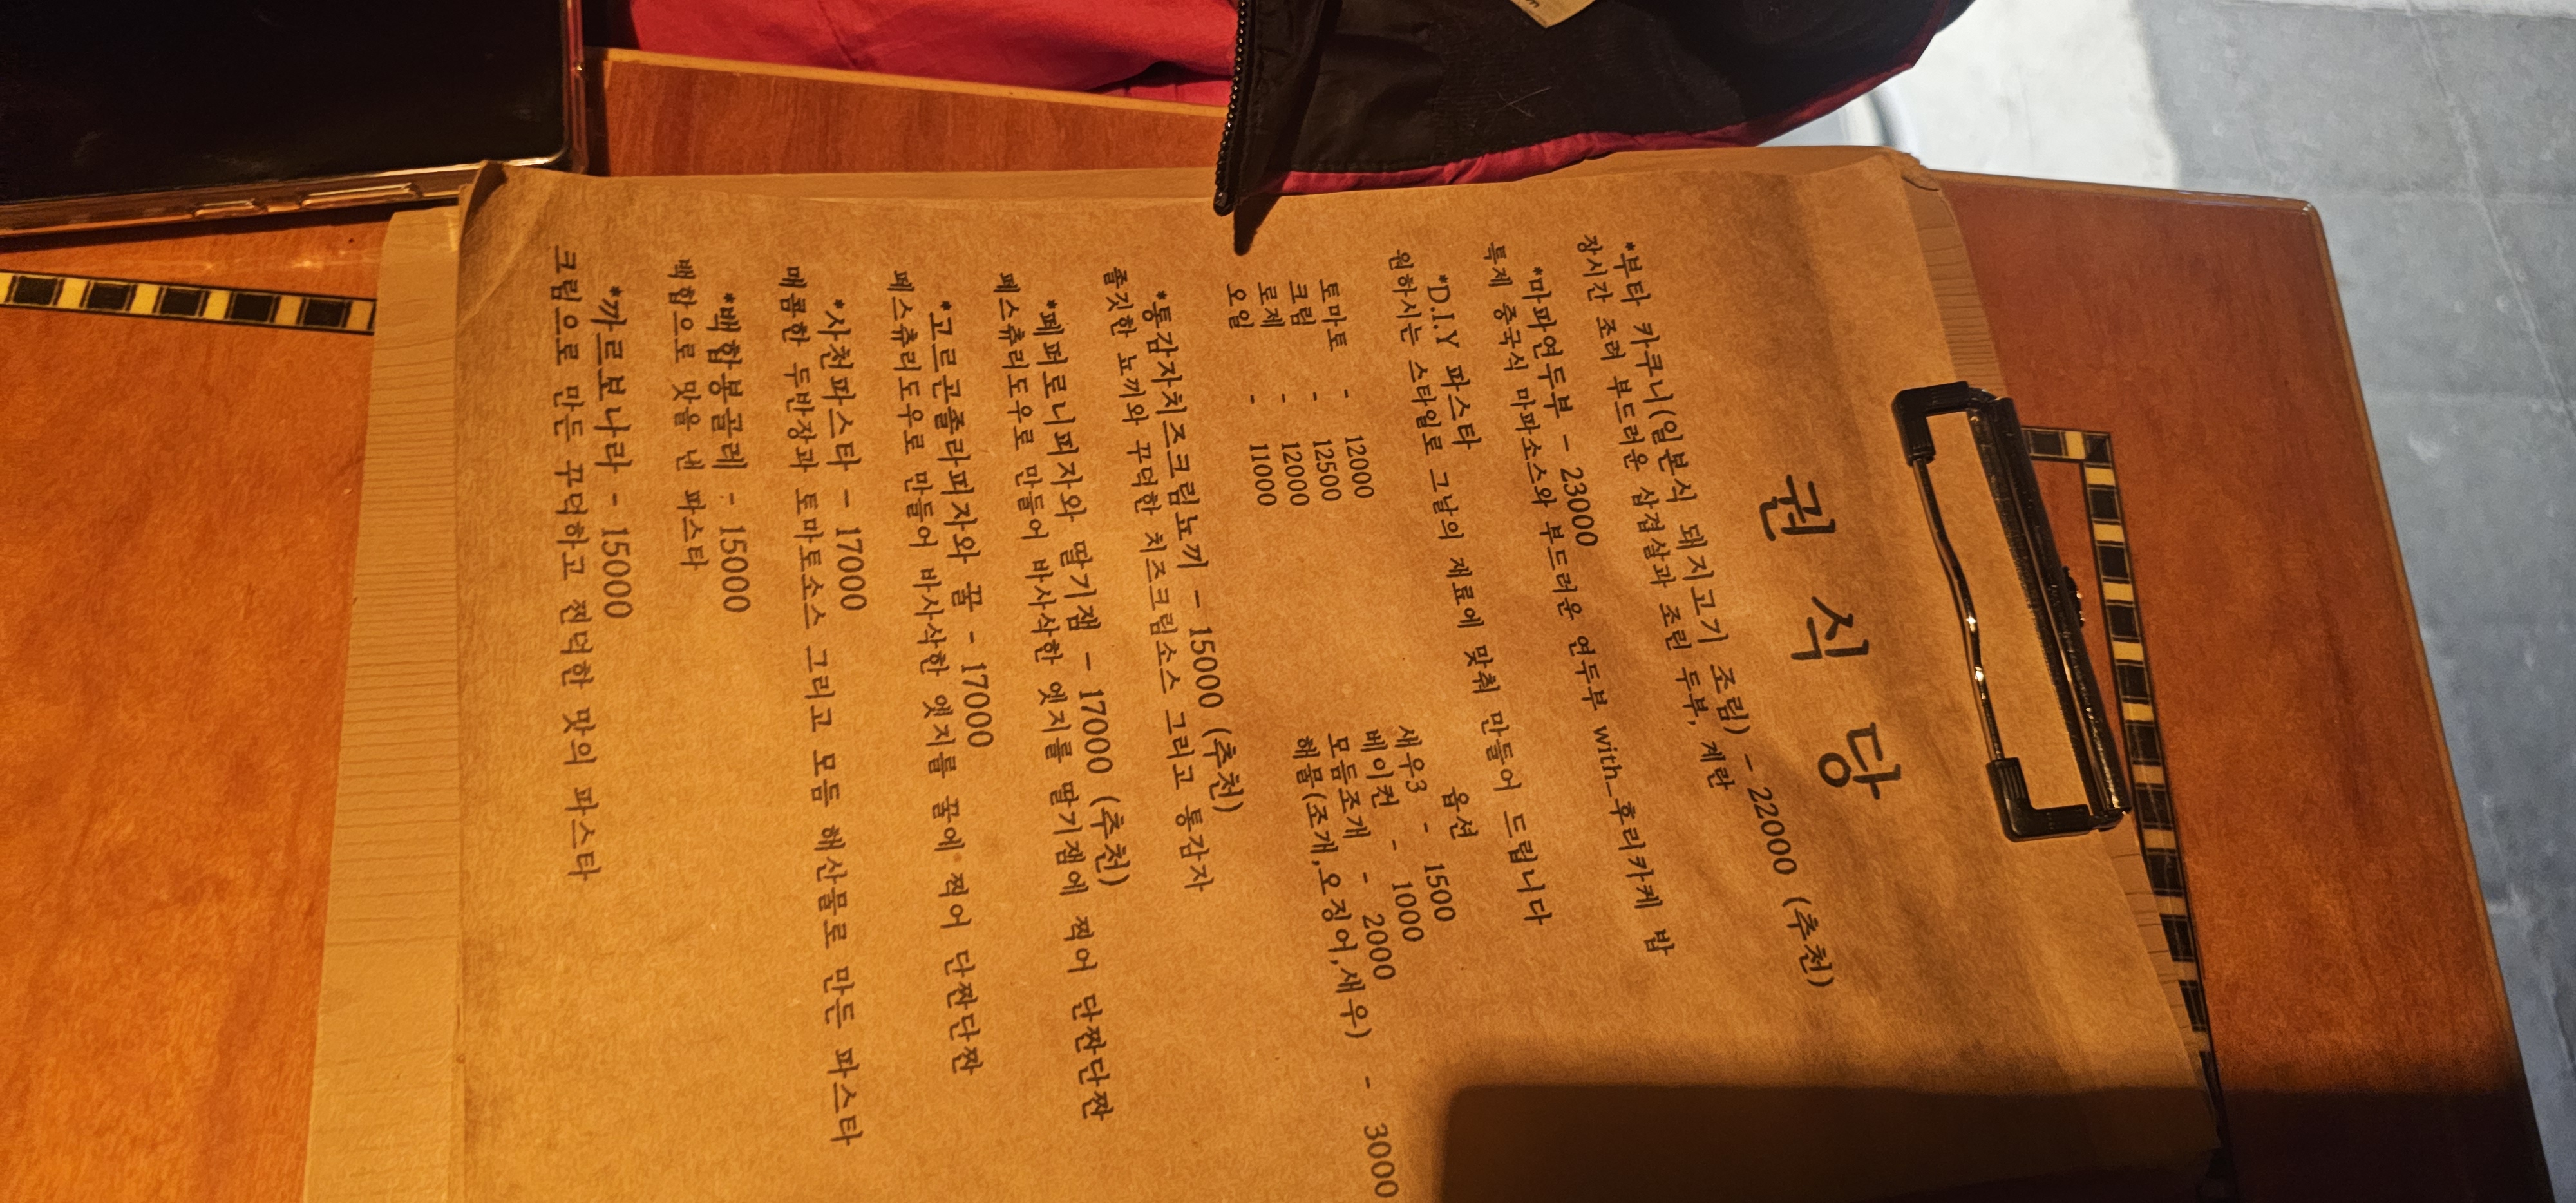 권 식 당
*부타 카쿠니(일본식 돼지고기 조림) - 22000 (추천)
장시간 조려 부드러운 삼겹살과 조린 두부, 계란
*마파연두부 - 23000
특제 중국식 마파소스와 부드러운 연두부 with_후리카케 밥
*D.I.Y 파스타
원하시는 스타일로 그날의 재료에 맞춰 만들어 드립니다
옵션
토마토 - 12000 새우3 - 1500
크림 - 12500 베이컨 - 1000
로제 - 12000 모듬조개 - 2000
오일 - 11000 해물(조개,오징어,새우) - 3000
*통감자치즈크림뇨끼 - 15000 (추천)
쫄깃한 뇨끼와 꾸덕한 치즈크림소스 그리고 통감자
*페퍼로니피자와 딸기잼 - 17000 (추천)
페스츄리도우로 만들어 바사삭한 엣지를 딸기잼에 찍어 단짠단짠
*고르곤졸라피자와 꿀 - 17000
페스츄리도우로 만들어 바사삭한 엣지를 꿀에 찍어 단짠단짠
*사천파스타 - 17000
매콤한 두반장과 토마토소스 그리고 모듬 해산물로 만든 파스타
*백합봉골레 - 15000
백합으로 맛을 낸 파스타
*까르보나라 - 15000
크림으로 만든 꾸덕하고 찐덕한 맛의 파스타